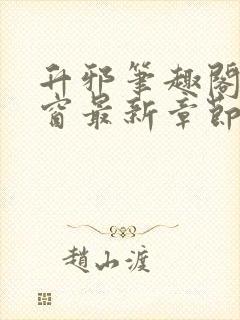 升邪筆趣閣
窗最新章節
趙山渡